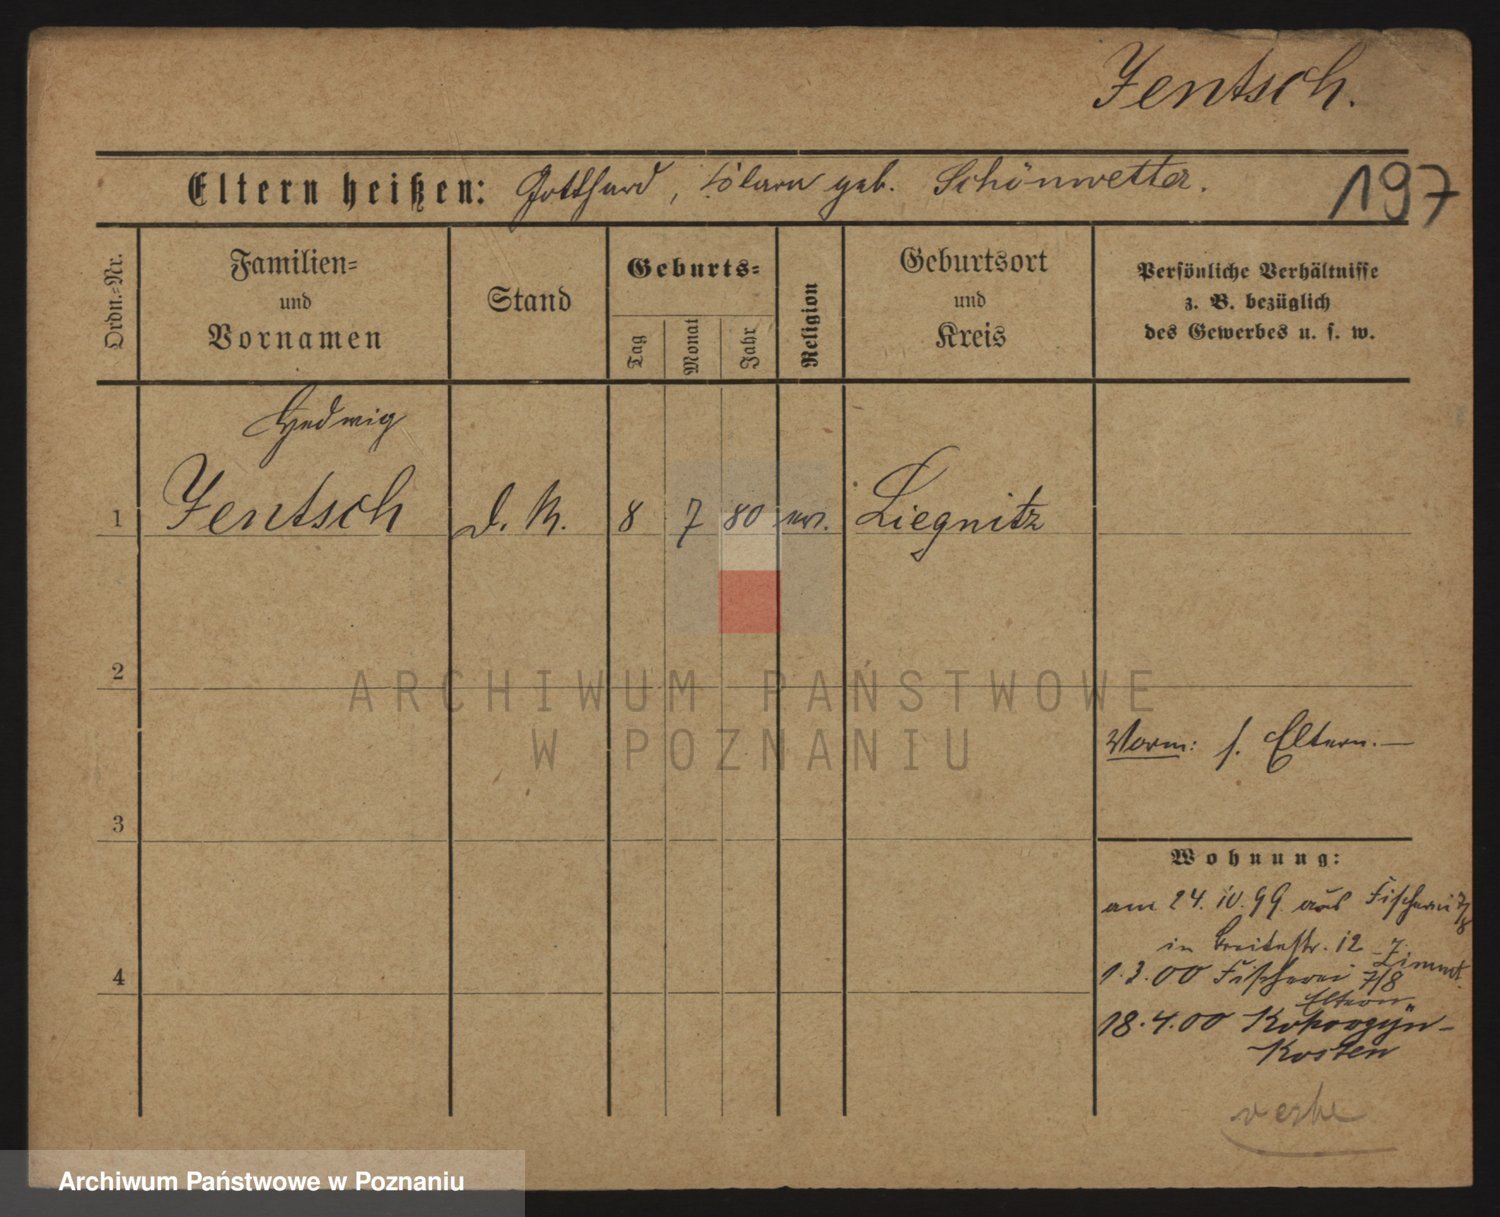 Jentsch.
Eltern heißen: Gotthard, Clara geb. Schönwetter.
197
Ordn.-Nr.
Familien-
und
Vornamen
Stand
Geburts-
Tag
Monat
Jahr
Religion
Geburtsort
und
Kreis
Persönliche Verhältnisse
z. B. bezüglich
des Gewerbes u. s. w.
Hedwig
1 Jentsch 8 7 80 Liegnitz
2
Vorm: s. Eltern.—
3
Wohnung:
am 24. 10. 99 aus Fischerei 7/8
in Breitestr. 12
1. 3. 00 Fischerei 7/8
Eltern
18. 4. 00
Kosten
4
ARCHIWUM PAŃSTWOWE
W POZNANIU
Archiwum Państwowe w Poznaniu